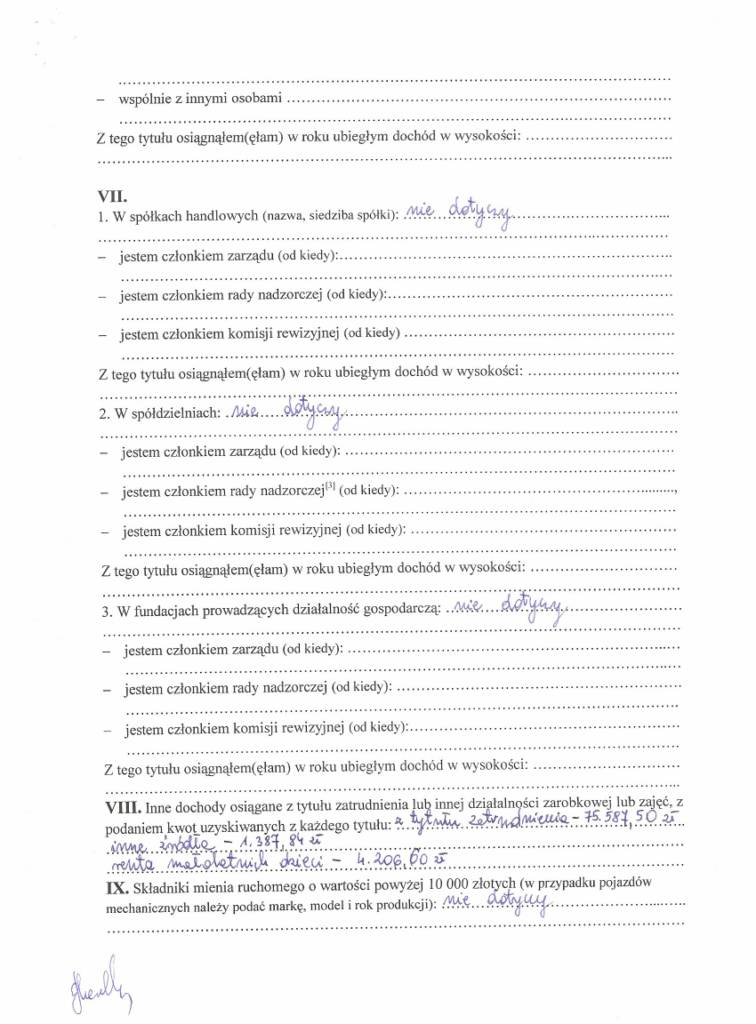 – wspólnie z innymi osobami
Z tego tytułu osiągnąłem(ęłam) w roku ubiegłym dochód w wysokości:
VII.
1. W spółkach handlowych (nazwa, siedziba spółki): nie dotyczy
– jestem członkiem zarządu (od kiedy):
– jestem członkiem rady nadzorczej (od kiedy):
– jestem członkiem komisji rewizyjnej (od kiedy)
Z tego tytułu osiągnąłem(ęłam) w roku ubiegłym dochód w wysokości:
2. W spółdzielniach: nie dotyczy
– jestem członkiem zarządu (od kiedy):
– jestem członkiem rady nadzorczej[3] (od kiedy):
– jestem członkiem komisji rewizyjnej (od kiedy):
Z tego tytułu osiągnąłem(ęłam) w roku ubiegłym dochód w wysokości:
3. W fundacjach prowadzących działalność gospodarczą: nie dotyczy
– jestem członkiem zarządu (od kiedy):
– jestem członkiem rady nadzorczej (od kiedy):
– jestem członkiem komisji rewizyjnej (od kiedy):
Z tego tytułu osiągnąłem(ęłam) w roku ubiegłym dochód w wysokości:
VIII. Inne dochody osiągane z tytułu zatrudnienia lub innej działalności zarobkowej lub zajęć, z
podaniem kwot uzyskiwanych z każdego tytułu: z tytułu zatrudnienia – 75.587,50 zł
inne źródła – 1.387,84 zł
renta małoletnich dzieci – 4.206,60 zł
IX. Składniki mienia ruchomego o wartości powyżej 10 000 złotych (w przypadku pojazdów
mechanicznych należy podać markę, model i rok produkcji): nie dotyczy